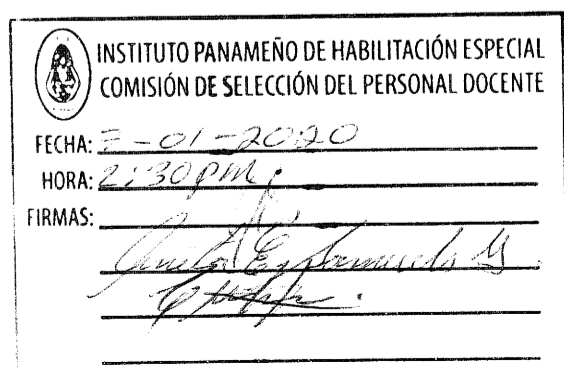 INSTITUTO PANAMEÑO DE HABILITACIÓN ESPECIAL
COMISIÓN DE SELECCIÓN DEL PERSONAL DOCENTE
FECHA: -01-2020
HORA: 2:30pm.
FIRMAS: